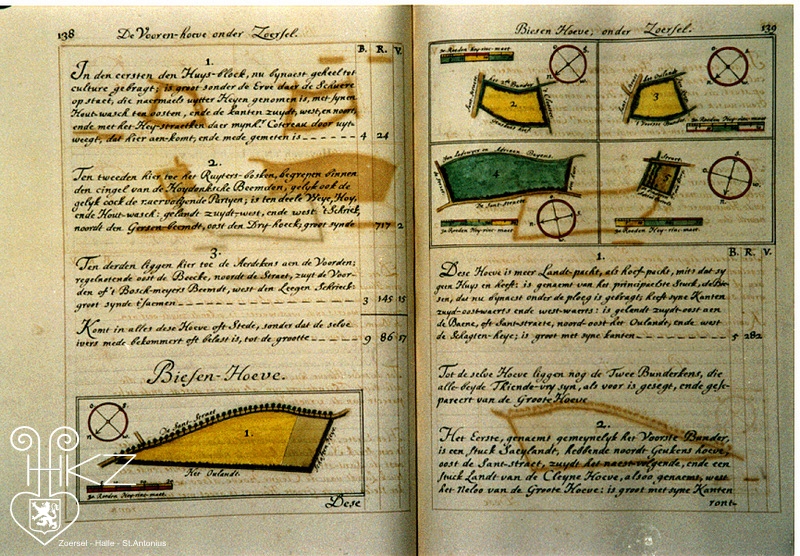 138 De Vooren-hoeve onder Zoersel.
B. R. V.
1.
In den eersten den Huys-block, nu bynaest geheel tot
culture gebragt; is groot sonder de Erve daer de Schuere
op staet, die naermaels uytter Heyen genomen is, met synen
Hout-wasch ten oosten, ende de kanten zuydt, west, en noort,
ende met het Hey-straetken daer mynh.r Cotereau door uyt-
weegt, dat hier aen-komt, ende mede gemeten is 4 24
2.
Ten tweeden hier toe het Ruyters-bosken, begrepen binnen
den cingel van de Hoydonksche Beemden, gelyk ook de
gelyk oock de naervolgende Partyen; is ten deele Weye, Hoy,
ende Hout-wasch: gelandt zuydt-west, ende west 't Schriek,
noordt den Gersen-beemdt, oost den Dry-hoeck; groot synde 717 2
3.
Ten derden liggen hier toe de Aerdekens aen de Voorden;
regelnotende oost de Beecke, noordt de Straet, zuyt de Voor-
den of 't Bosch-meyers Beemdt, west den Leegen Schrieck:
groot synde t'saemen 3 145 15
Komt in alles dese Hoeve oft Stede, sonder dat de selve
ivers mede bekommert oft belast is, tot de grootte 9 86 17
Biesen-Hoeve.
o. z. w. n.
De Sant-Straet
1.
Het Oulandt.
30 Roeden Hey-rinc-maet.
Dese
HKZ
Zoersel - Halle - St.Antonius
Biesen Hoeve, onder Zoersel. 139
30 Roeden Hey-rinc-maet
2.
3.
't Voorste Bunder
4.
Jan Lodewyx en Adriaen Puyens.
De Sant-Straete
30 Roeden Hey-rinc-maet.
Straet
5
30 Roeden Hey-rinc-maet.
B. R. V.
1.
Dese Hoeve is meer Landt-pacht, als hoef-pacht, mits dat sy
geen Huys en heeft: is genaemt van het principaelste Stuck, de Bie-
sen, dat nu bynaest onder de ploeg is gebragt; heeft syne Kanten
zuyd-oostwaerts ende west-waerts: is gelandt zuydt-oost aen
de Baene, oft Sant-straete, noord-oost het Oulandt, ende west
de Schayten-heye; is groot met syne kanten 5 282
Tot de selve Hoeve liggen nog de Twee Bunderkens, die
alle-beyde Thiende-vry syn, als voor is gesegt, ende gese-
pareert van de Groote Hoeve
2.
Het Eerste, genaemt gemeynelyk het Voorste Bunder,
is een stuck Saeylandt, hebbende noordt Geukens hoeve,
oost de Sant-straet, zuydt het naest-volgende, ende een
stuck Landt van de Cleyne Hoeve, alsoo genaemt, west
het Neloo van de Groote Hoeve: is groot met syne Kanten
ront-